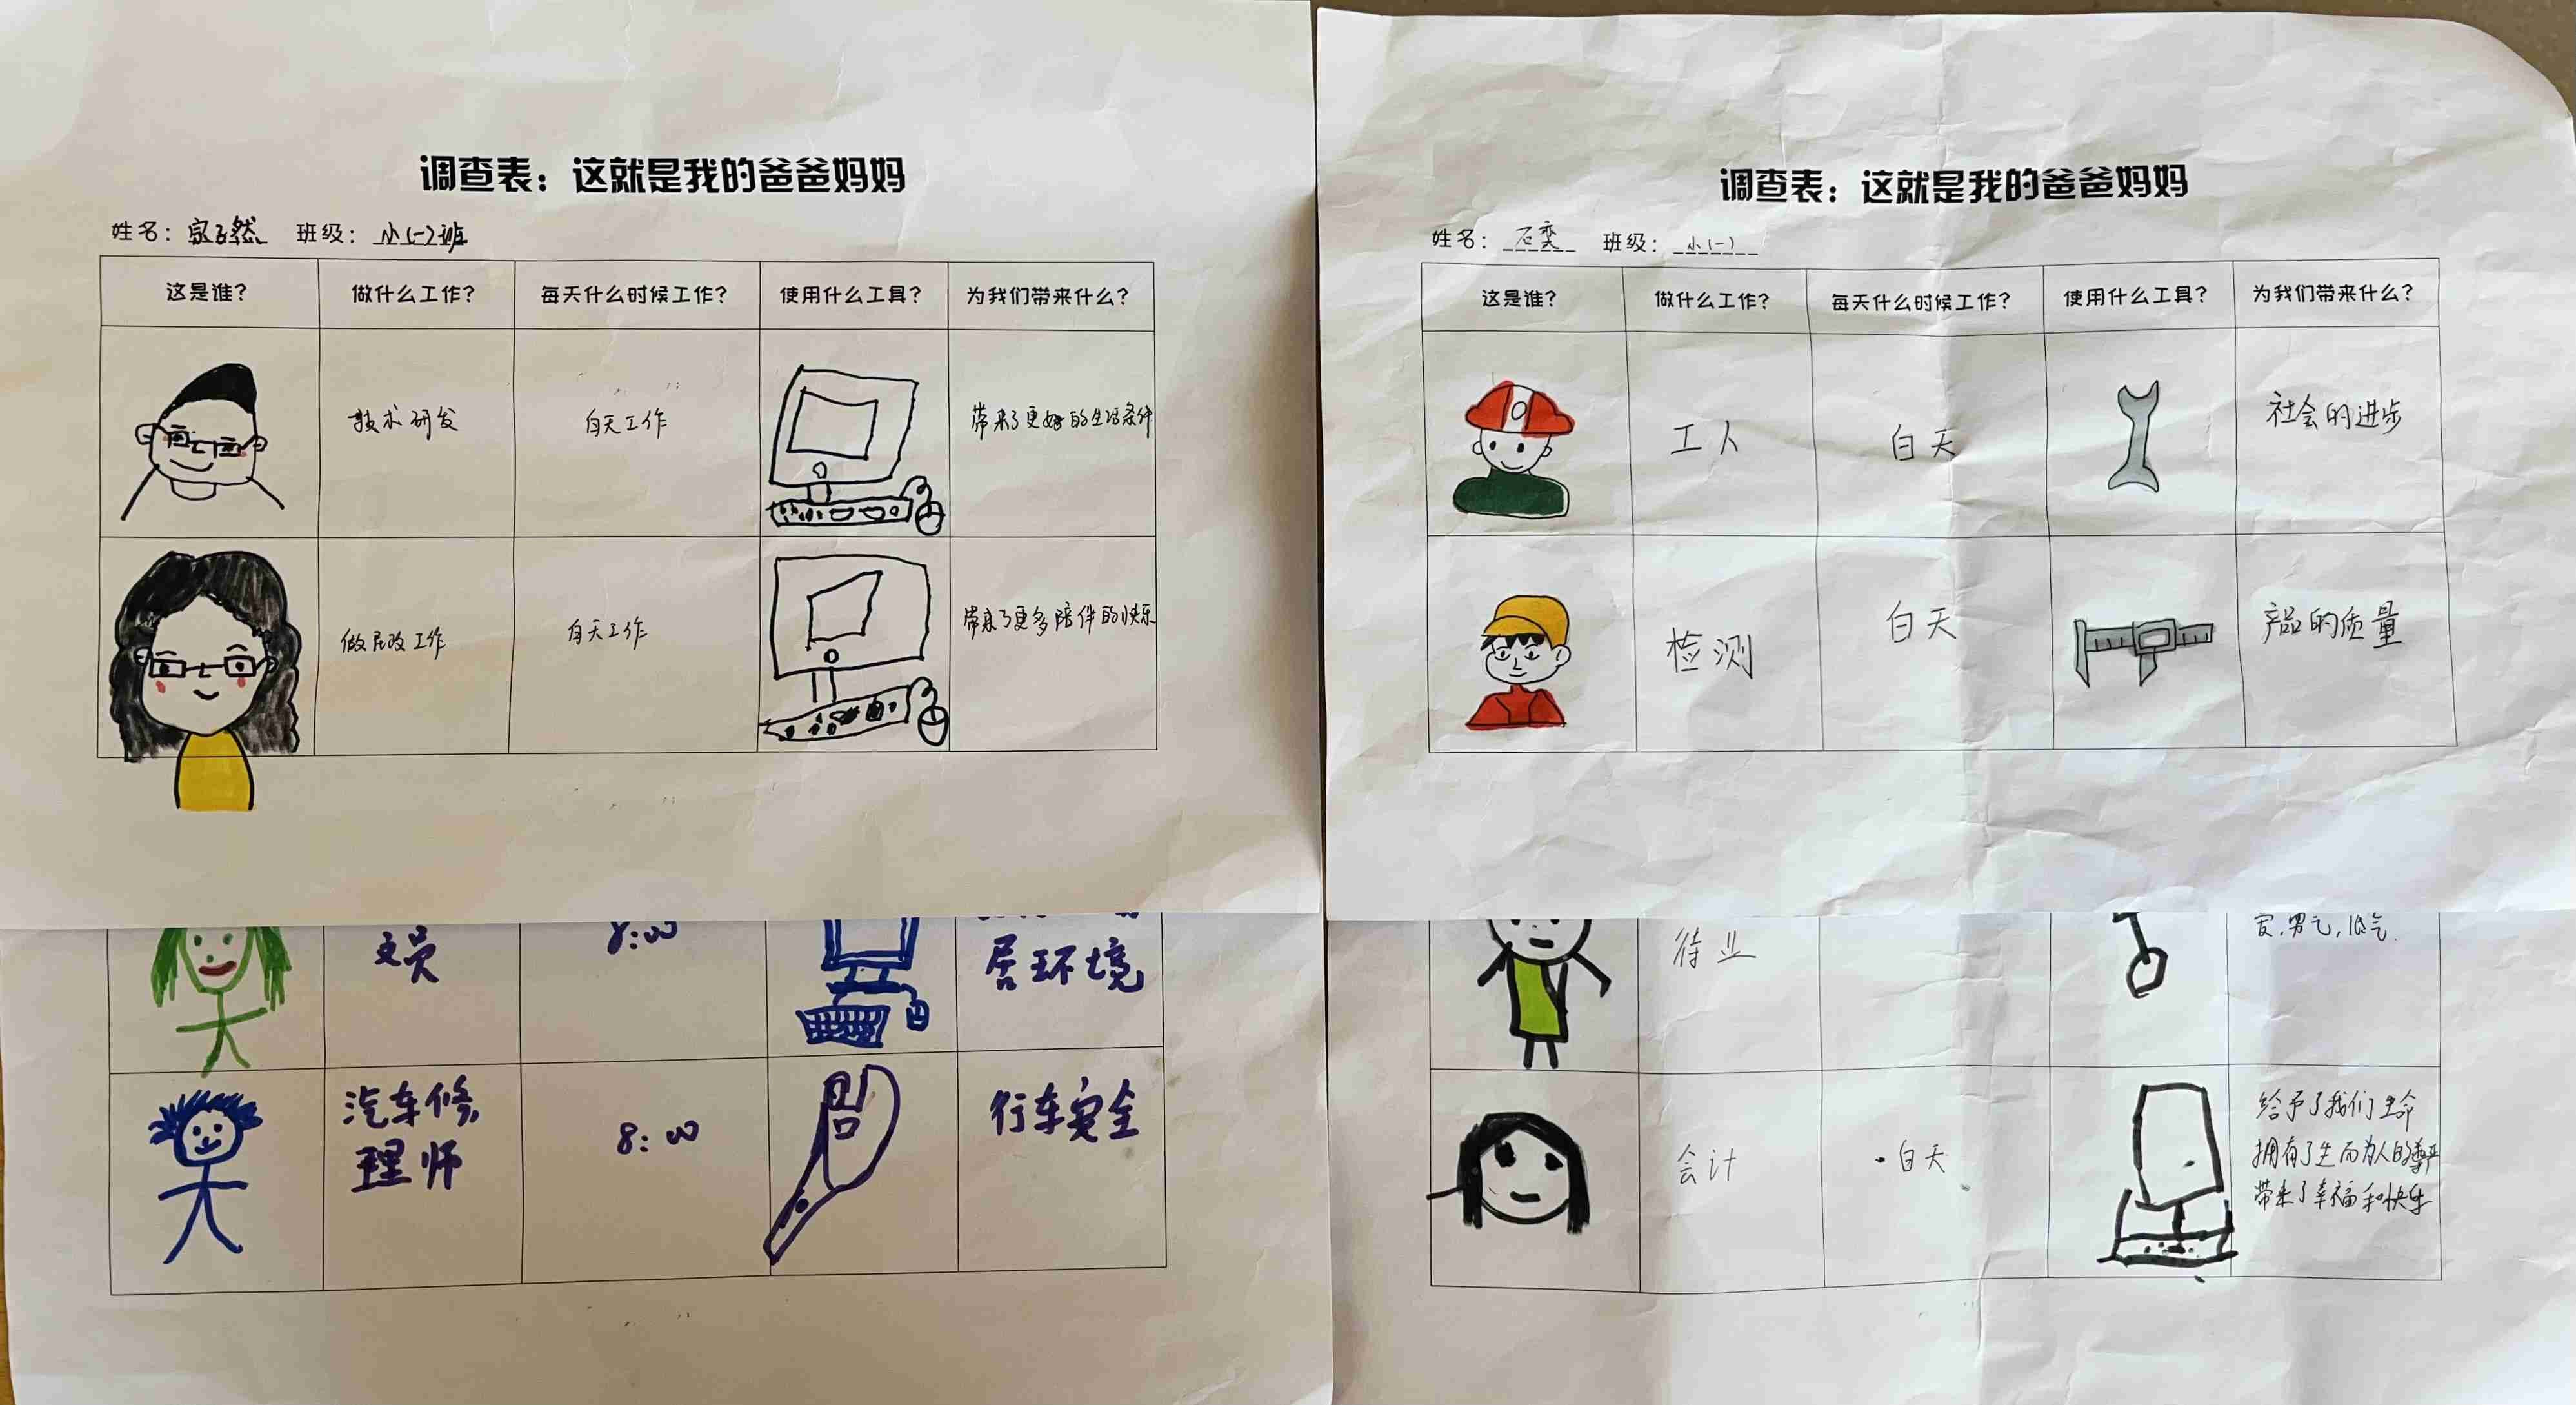 调查表：这就是我的爸爸妈妈
姓名： 然 班级：小(一)班
这是谁？ 做什么工作？ 每天什么时候工作？ 使用什么工具？ 为我们带来什么？
技术研发 白天工作 带来了更好的生活条件
做民政工作 白天工作 带来了更多陪伴的快乐
调查表：这就是我的爸爸妈妈
姓名：石奕 班级：小(一)
这是谁？ 做什么工作？ 每天什么时候工作？ 使用什么工具？ 为我们带来什么？
工人 白天 社会的进步
检测 白天 产品的质量
文员 8:00 居环境
汽车修
理师 8:00 行车安全
待业
会计 白天 给予了我们生命
拥有了生而为人的尊严
带来了幸福和快乐